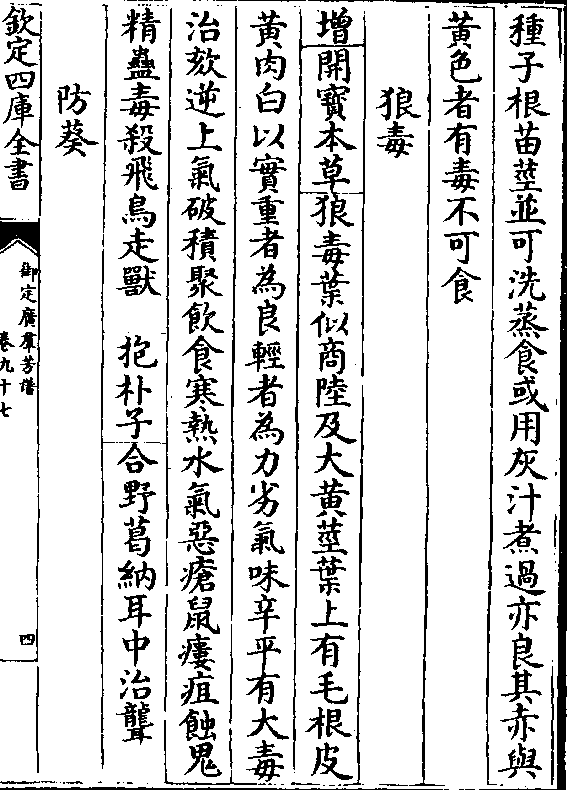 種子根苗莖並可洗蒸食或用灰汁煮過亦良其赤與
黃色者有毒不可食
狼毒
增開寶本草狼毒葉似商陸及大黃莖葉上有毛根皮
黃肉白以實重者為良輕者為力劣氣味辛平有大毒
治欬逆上氣破積聚飲食寒熱水氣惡瘡鼠瘻疽蝕鬼
精蠱毒殺飛鳥走獸 抱朴子合野葛納耳中治聾
防葵
欽定四庫全書
御定廣羣芳譜
卷九十七
四